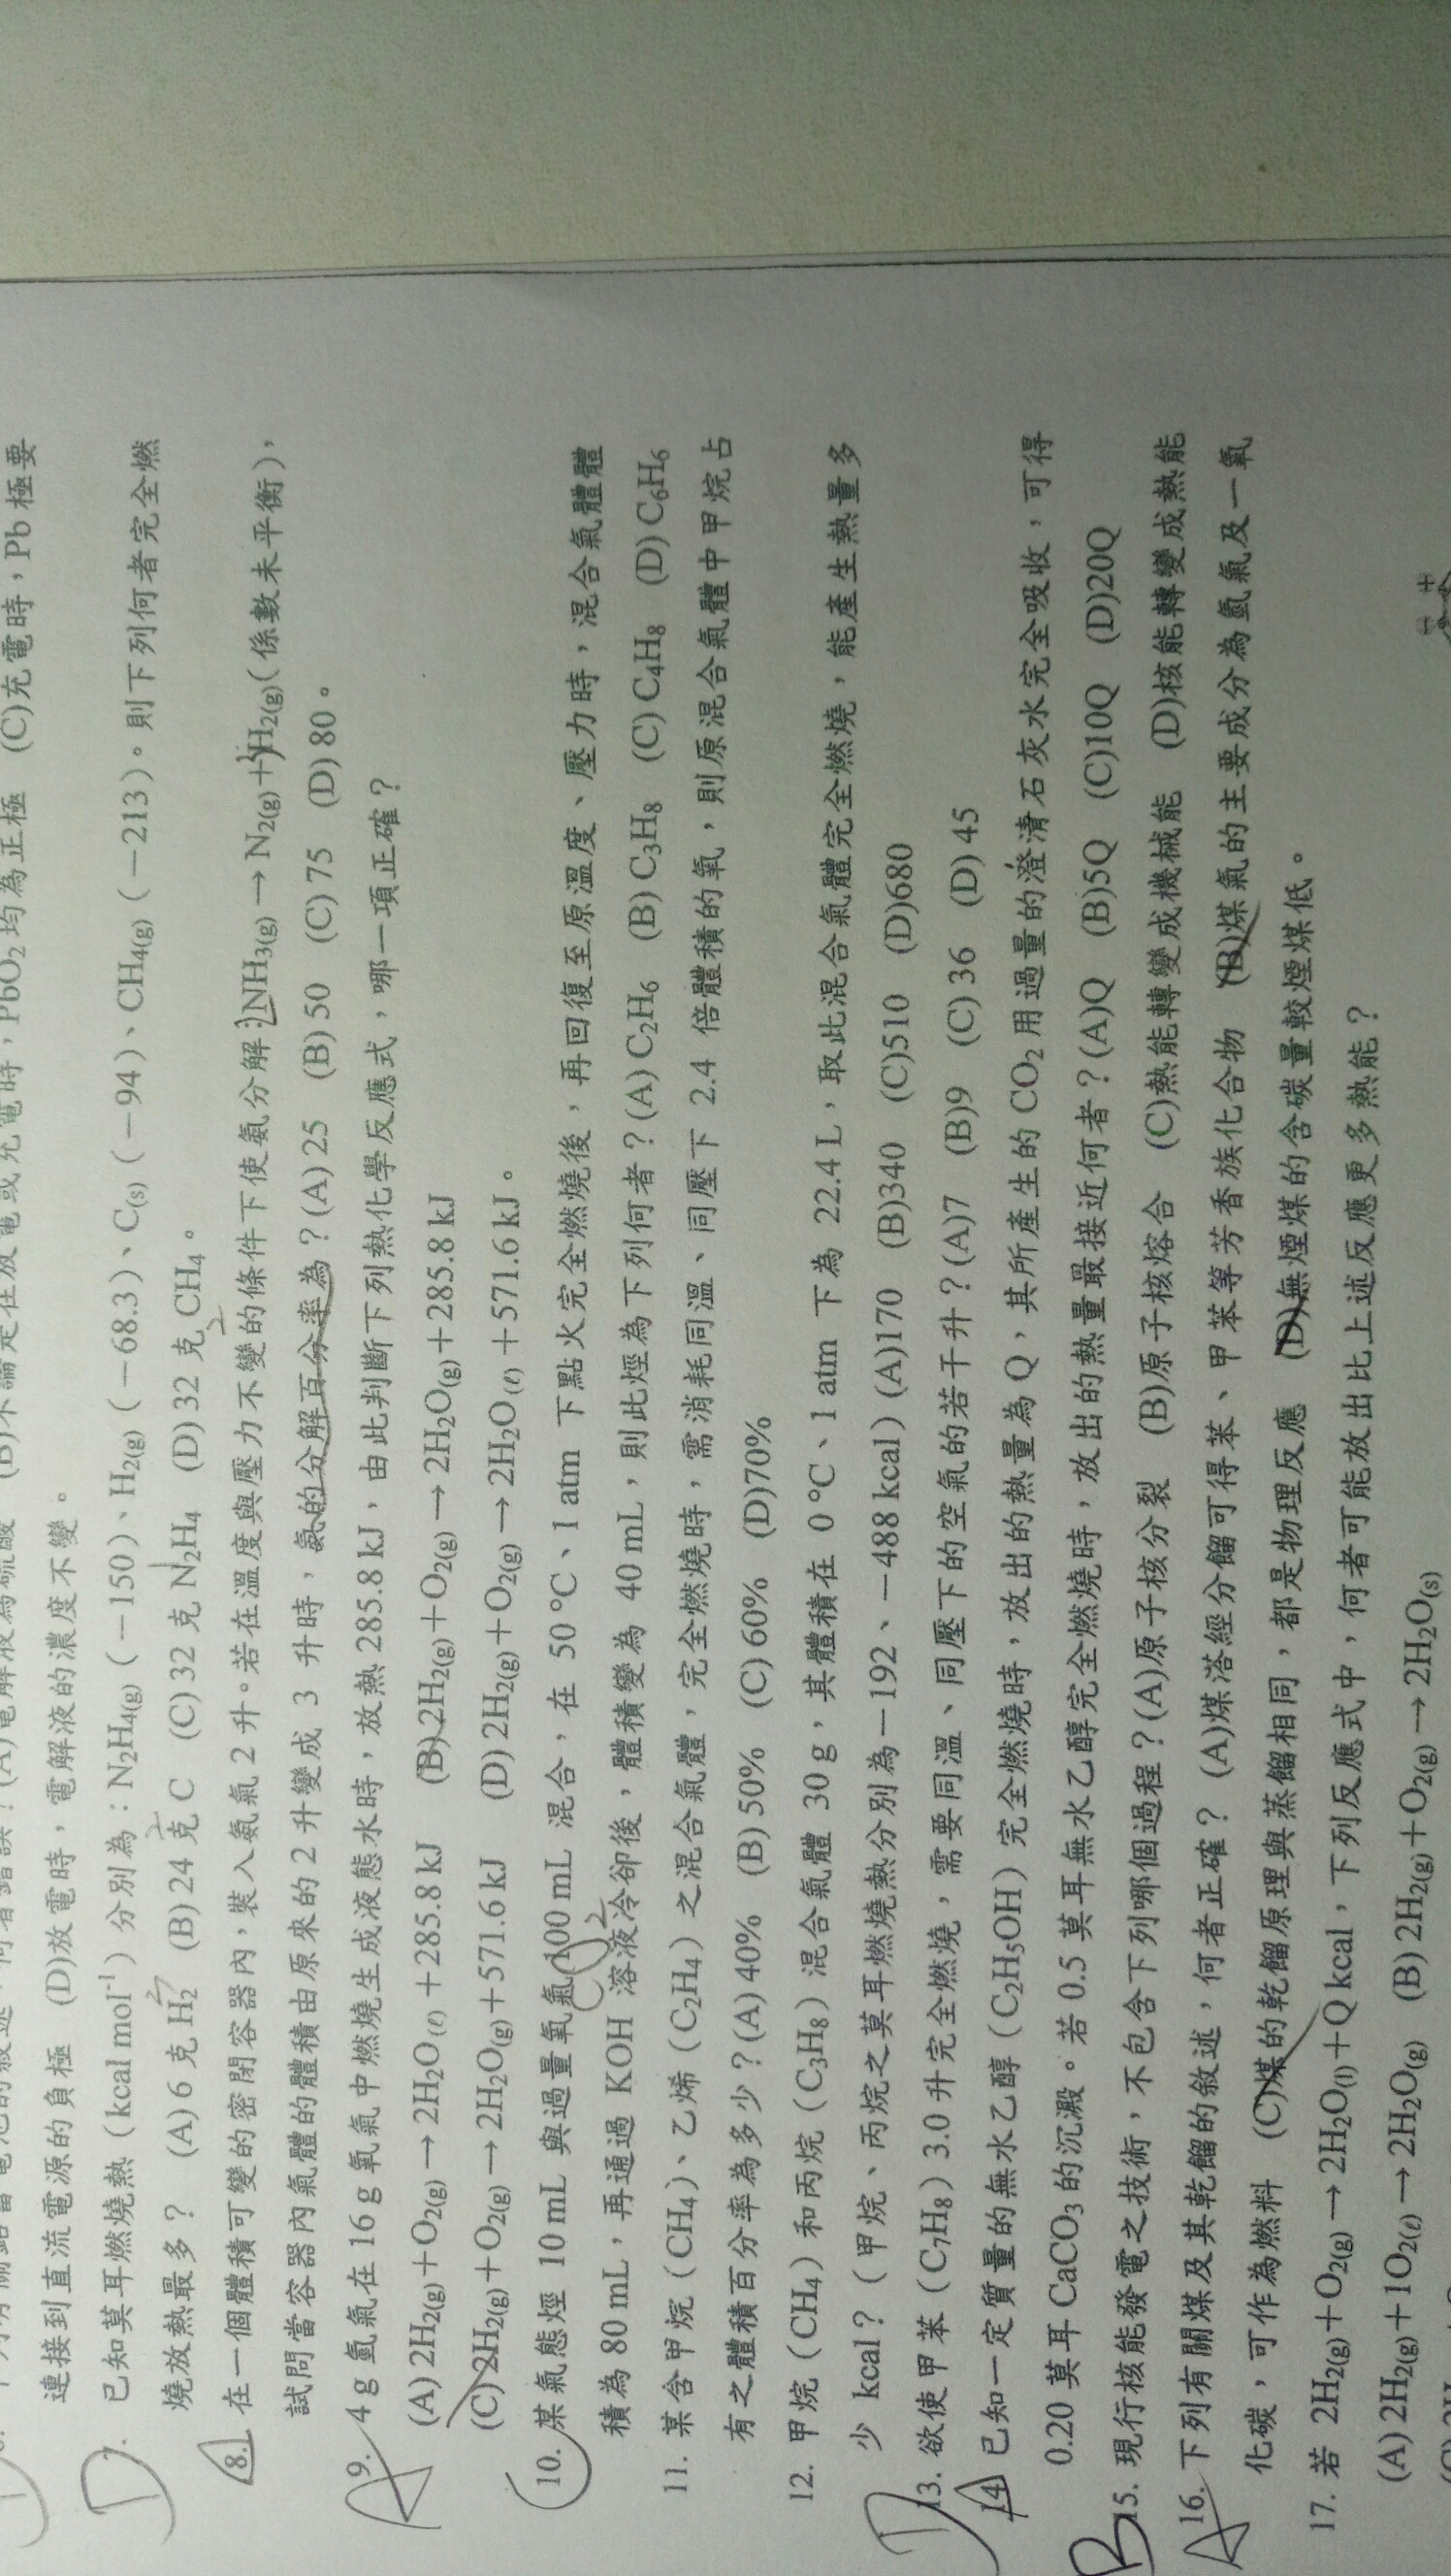 連接到直流電源的負極 (D)放電時，電解液的濃度不變。
D 7. 已知莫耳燃燒熱（kcal mol⁻¹）分別為：N₂H₄(g)（－150）、H₂(g)（－68.3）、C(s)（－94）、CH₄(g)（－213）。則下列何者完全燃
燒放熱最多？ (A) 6 克 H₂ (B) 24 克 C (C) 32 克 N₂H₄ (D) 32 克 CH₄。
8. 在一個體積可變的密閉容器內，裝入氨氣 2 升。若在溫度與壓力不變的條件下使氨分解：NH₃(g)→N₂(g)＋H₂(g)(係數未平衡)，
試問當容器內氣體的體積由原來的 2 升變成 3 升時，氨的分解百分率為？(A) 25 (B) 50 (C) 75 (D) 80。
A 9. 4 g 氫氣在 16 g 氧氣中燃燒生成液態水時，放熱 285.8 kJ，由此判斷下列熱化學反應式，哪一項正確？
(A) 2H₂(g)＋O₂(g)→2H₂O(ℓ)＋285.8 kJ (B) 2H₂(g)＋O₂(g)→2H₂O(g)＋285.8 kJ
(C) 2H₂(g)＋O₂(g)→2H₂O(g)＋571.6 kJ (D) 2H₂(g)＋O₂(g)→2H₂O(ℓ)＋571.6 kJ。
10. 某氣態烴 10 mL 與過量氧氣 100 mL 混合，在 50 °C、1 atm 下點火完全燃燒後，再回復至原溫度、壓力時，混合氣體體
積為 80 mL，再通過 KOH 溶液冷卻後，體積變為 40 mL，則此烴為下列何者？(A) C₂H₆ (B) C₃H₈ (C) C₄H₈ (D) C₆H₆
11. 某含甲烷（CH₄）、乙烯（C₂H₄）之混合氣體，完全燃燒時，需消耗同溫、同壓下 2.4 倍體積的氧，則原混合氣體中甲烷占
有之體積百分率為多少？(A) 40% (B) 50% (C) 60% (D)70%
12. 甲烷（CH₄）和丙烷（C₃H₈）混合氣體 30 g，其體積在 0 °C、1 atm 下為 22.4 L，取此混合氣體完全燃燒，能產生熱量多
少 kcal？（甲烷、丙烷之莫耳燃燒熱分別為－192、－488 kcal）(A)170 (B)340 (C)510 (D)680
D 13. 欲使甲苯（C₇H₈）3.0 升完全燃燒，需要同溫、同壓下的空氣的若干升？(A)7 (B)9 (C) 36 (D) 45
14 已知一定質量的無水乙醇（C₂H₅OH）完全燃燒時，放出的熱量為 Q，其所產生的 CO₂ 用過量的澄清石灰水完全吸收，可得
0.20 莫耳 CaCO₃ 的沉澱。若 0.5 莫耳無水乙醇完全燃燒時，放出的熱量最接近何者？(A)Q (B)5Q (C)10Q (D)20Q
B 15. 現行核能發電之技術，不包含下列哪個過程？(A)原子核分裂 (B)原子核熔合 (C)熱能轉變成機械能 (D)核能轉變成熱能
A 16. 下列有關煤及其乾餾的敘述，何者正確？ (A)煤溚經分餾可得苯、甲苯等芳香族化合物 (B)煤氣的主要成分為氫氣及一氧
化碳，可作為燃料 (C)煤的乾餾原理與蒸餾相同，都是物理反應 (D)無煙煤的含碳量較煙煤低。
17. 若 2H₂(g)＋O₂(g)→2H₂O(l)＋Q kcal，下列反應式中，何者可能放出比上述反應更多熱能？
(A) 2H₂(g)＋1O₂(ℓ)→2H₂O(g) (B) 2H₂(g)＋O₂(g)→2H₂O(s)